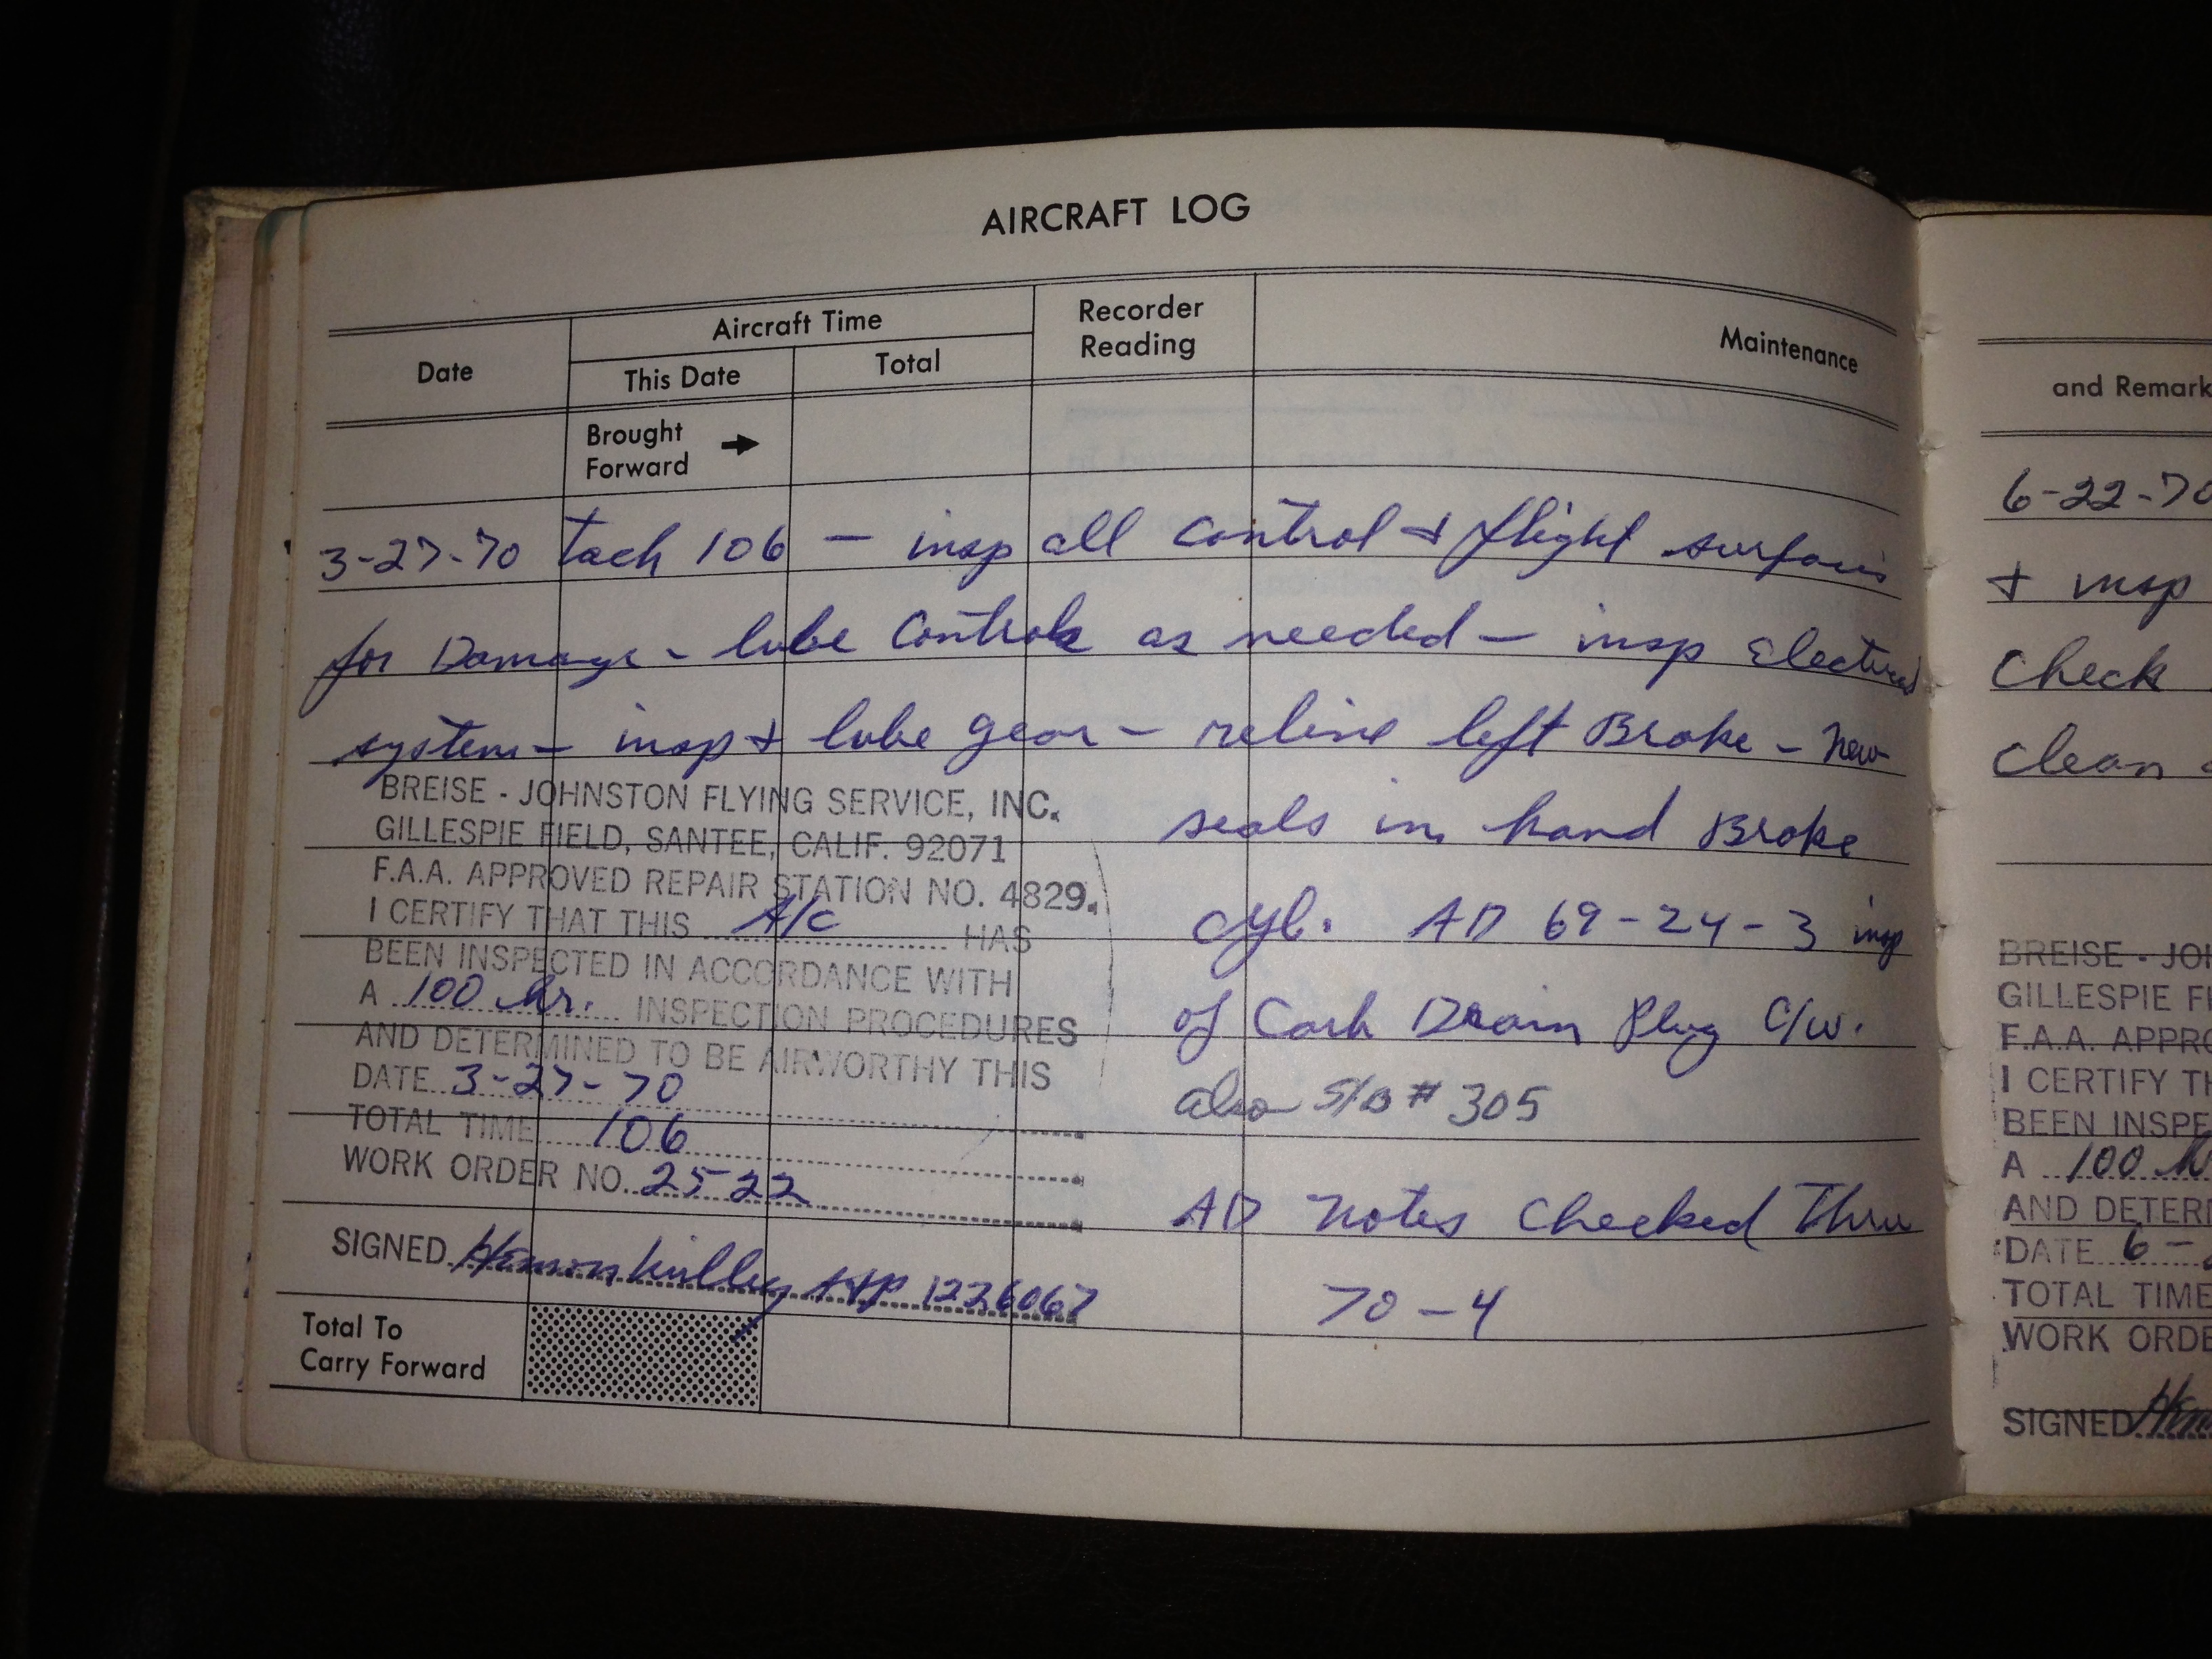 AIRCRAFT LOG
Date
Aircraft Time
This Date
Total
Recorder
Reading
Maintenance
Brought
Forward
3-27-70 tach 106 — insp all control + flight surfaces
for Damage - lube Controls as needed — insp Electrical
system — insp + lube gear — reline left Brake - New
seals in hand Brake
cyl. AD 69-24-3 insp
of Carb Drain Plug C/W.
also S/B # 305
AD Notes Checked Thru
70-4
BREISE - JOHNSTON FLYING SERVICE, INC.
GILLESPIE FIELD, SANTEE, CALIF. 92071
F.A.A. APPROVED REPAIR STATION NO. 4829.
I CERTIFY THAT THIS A/C HAS
BEEN INSPECTED IN ACCORDANCE WITH
A 100 hr. INSPECTION PROCEDURES
AND DETERMINED TO BE AIRWORTHY THIS
DATE 3-27-70
TOTAL TIME 106
WORK ORDER NO. 2522
SIGNED A&P 1226067
Total To
Carry Forward
and Remark
6-22-70
+ insp
Check
Clean
BREISE - JOH
GILLESPIE FI
F.A.A. APPRO
I CERTIFY TH
BEEN INSPE
A 100 h
AND DETERM
DATE 6-
TOTAL TIME
WORK ORDE
SIGNED